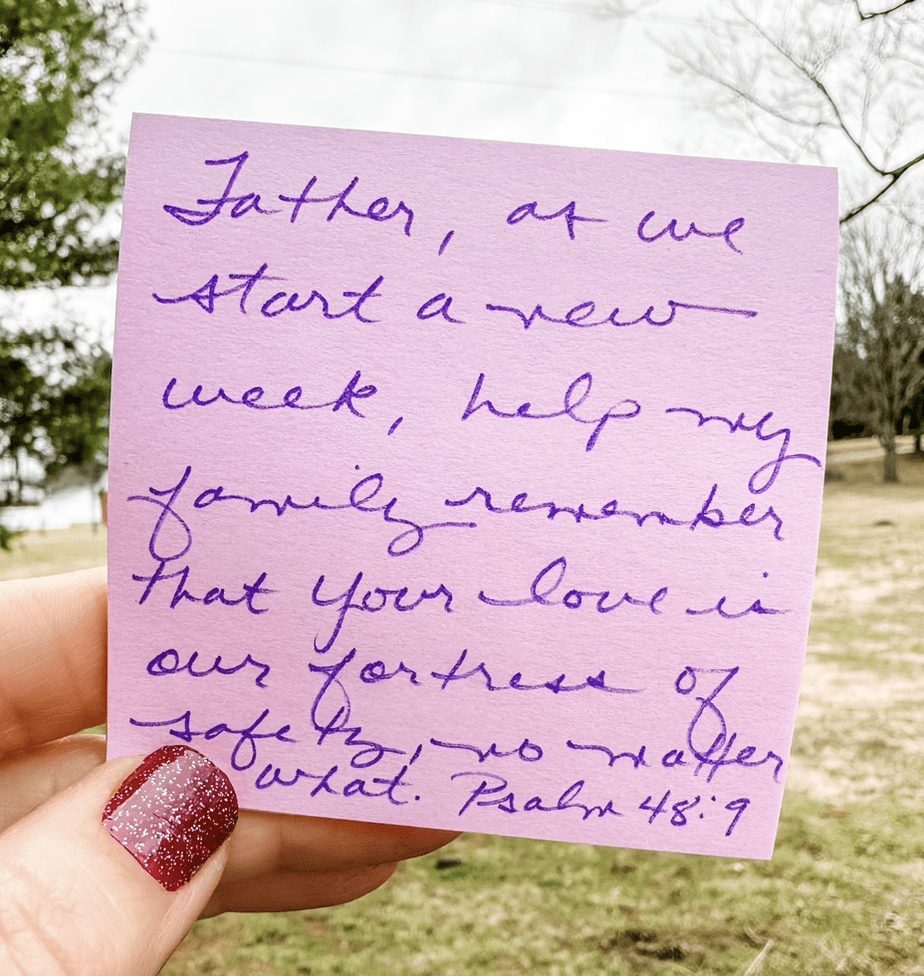 Father, as we
start a new
week, help my
family remember
that your love is
our fortress of
safety, no matter
what. Psalm 48:9